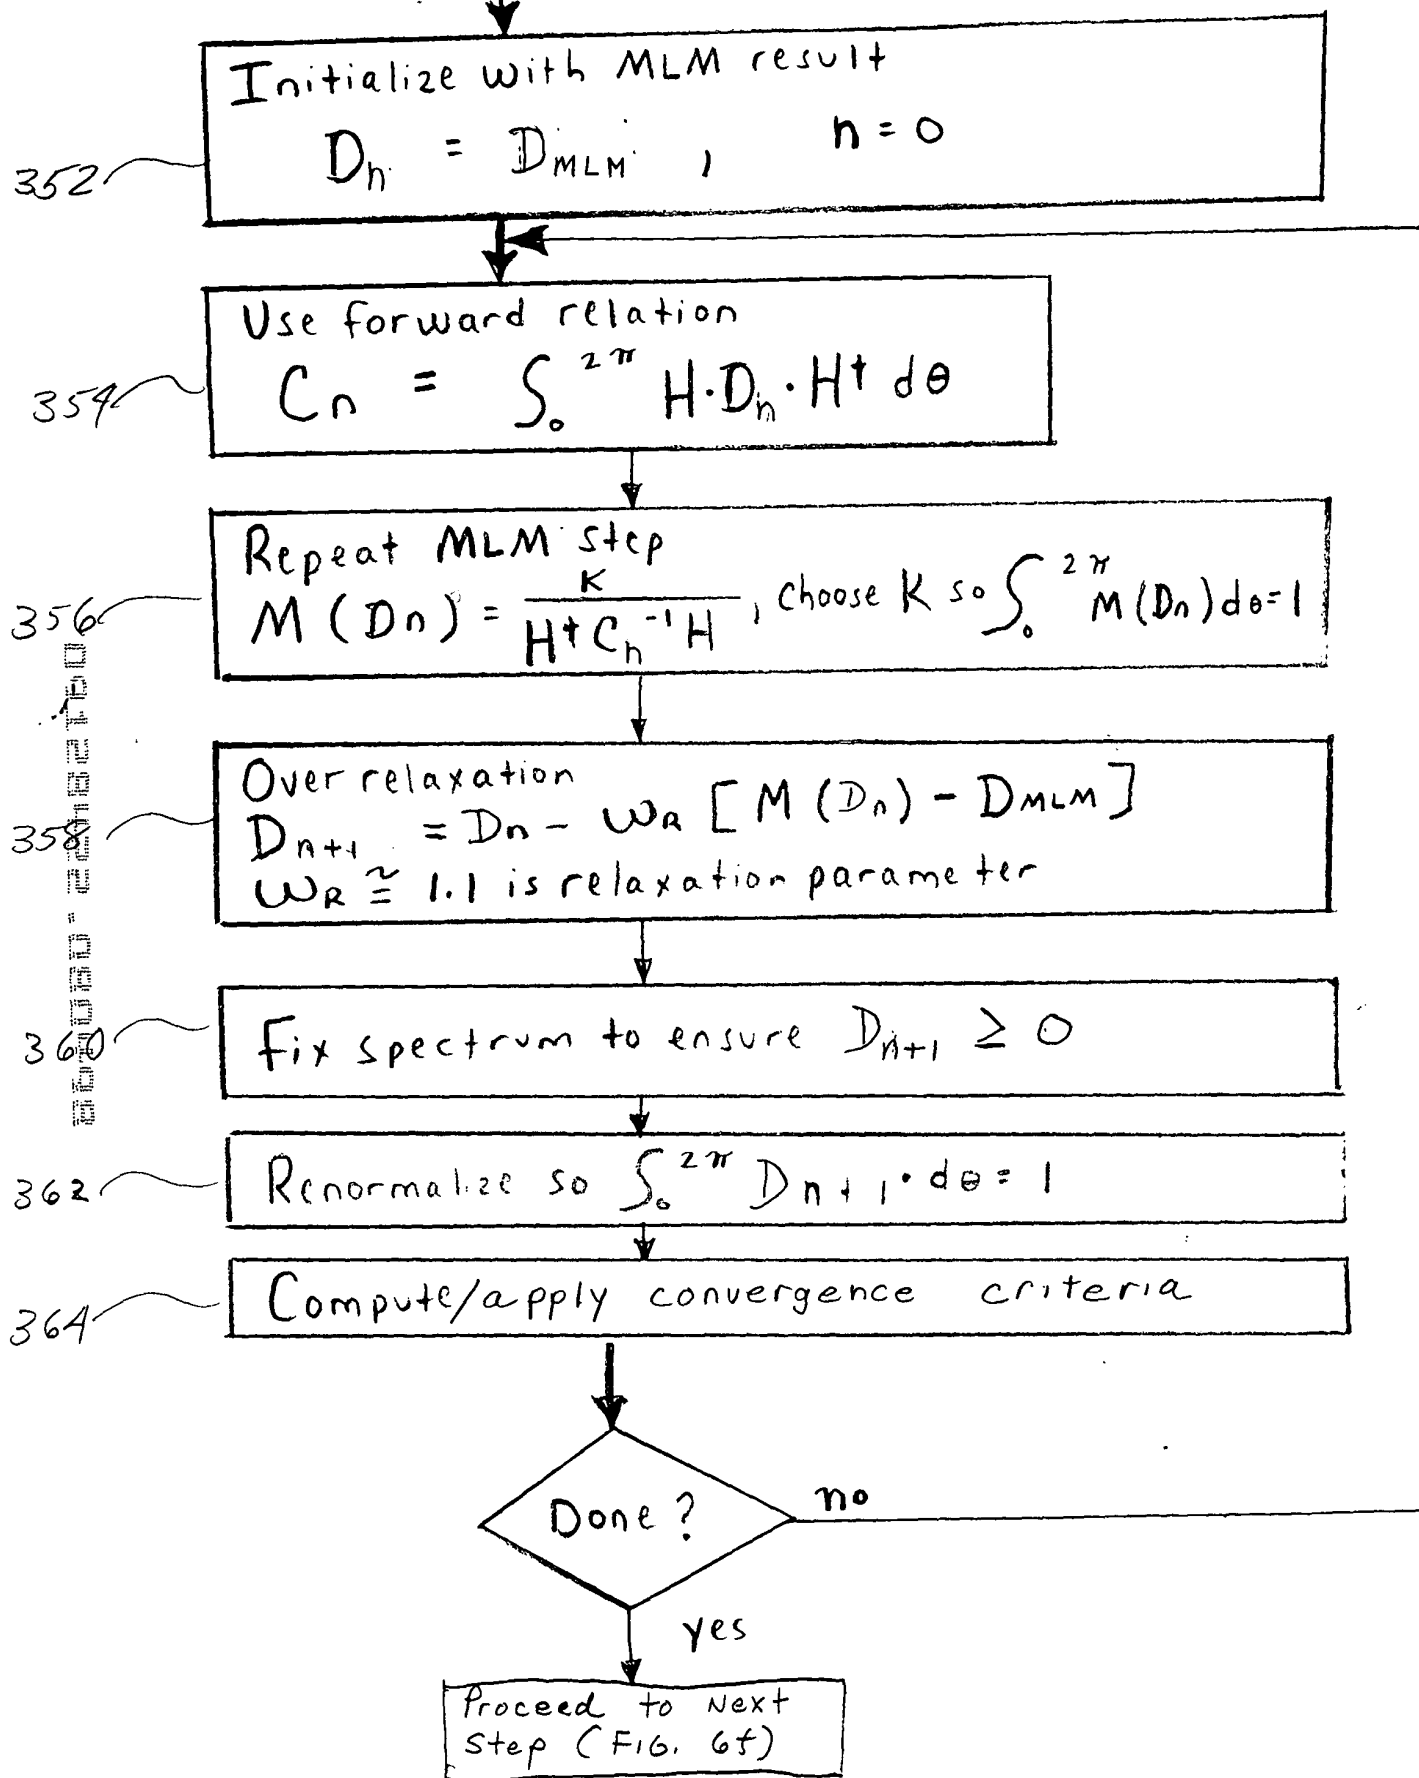 Initialize with MLM result
Dₙ = D_MLM , n = 0
352
Use forward relation
Cₙ = ∫₀^2π H·Dₙ·H† dθ
354
Repeat MLM step
M(Dₙ) = K / (H† Cₙ⁻¹ H) , choose K so ∫₀^2π M(Dₙ)dθ=1
356
Over relaxation
Dₙ₊₁ = Dₙ - ω_R [M(Dₙ) - D_MLM]
358
ω_R ≅ 1.1 is relaxation parameter
Fix spectrum to ensure Dₙ₊₁ ≥ 0
360
Renormalize so ∫₀^2π Dₙ₊₁·dθ = 1
362
Compute/apply convergence criteria
364
Done?
no
yes
Proceed to Next
Step (FIG. 6f)